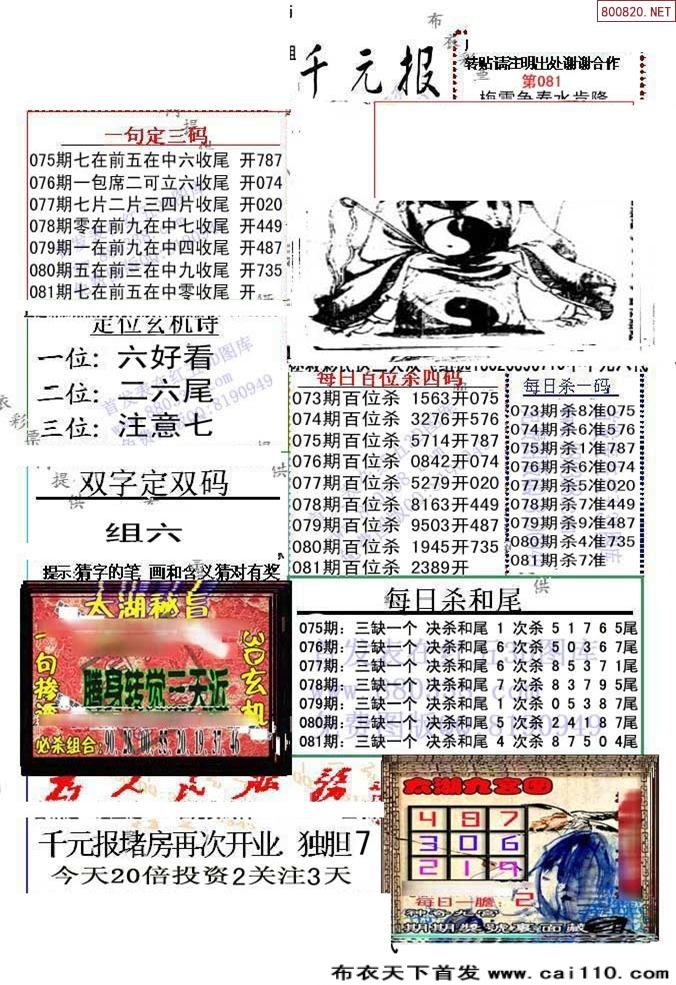 800820.NET
布衣彩票
千元报
转贴请注明出处谢谢合作
第081
一句定三码
075期七在前五在中六收尾 开787
076期一包席二可立六收尾 开074
077期七片二片三四片收尾 开020
078期零在前九在中七收尾 开449
079期一在前九在中四收尾 开487
080期五在前三在中九收尾 开735
081期七在前五在中零收尾 开
定位玄机诗
一位: 六好看
二位: 二六尾
三位: 注意七
双字定双码
组六
提示:猜字的笔 画和含义猜对有奖
每日百位杀四码
073期百位杀 1563开075
074期百位杀 3276开576
075期百位杀 5714开787
076期百位杀 0842开074
077期百位杀 5279开020
078期百位杀 8163开449
079期百位杀 9503开487
080期百位杀 1945开735
081期百位杀 2389开
每日杀一码
073期杀8准075
074期杀6准576
075期杀1准787
076期杀6准074
077期杀5准020
078期杀7准449
079期杀9准487
080期杀4准735
081期杀7准
每日杀和尾
075期: 三缺一个 决杀和尾 1 次杀 5 1 7 6 5尾
076期: 三缺一个 决杀和尾 6 次杀 5 0 3 6 7尾
077期: 三缺一个 决杀和尾 6 次杀 8 5 3 7 1尾
078期: 三缺一个 决杀和尾 7 次杀 8 3 7 9 5尾
079期: 三缺一个 决杀和尾 1 次杀 0 5 3 8 7尾
080期: 三缺一个 决杀和尾 5 次杀 2 4 1 8 7尾
081期: 三缺一个 决杀和尾 4 次杀 8 7 5 0 4尾
太湖秘旨
3D玄机
腾身转觉三天近
必杀组合:90.28.00.55.20.19.37.46
千元报堵房再次开业. 独胆7
今天20倍投资2关注3天
太湖九宫图
4 8 7
3 0 6
2 1 9
每日一胆: 2
布衣天下首发 www.cai110.com